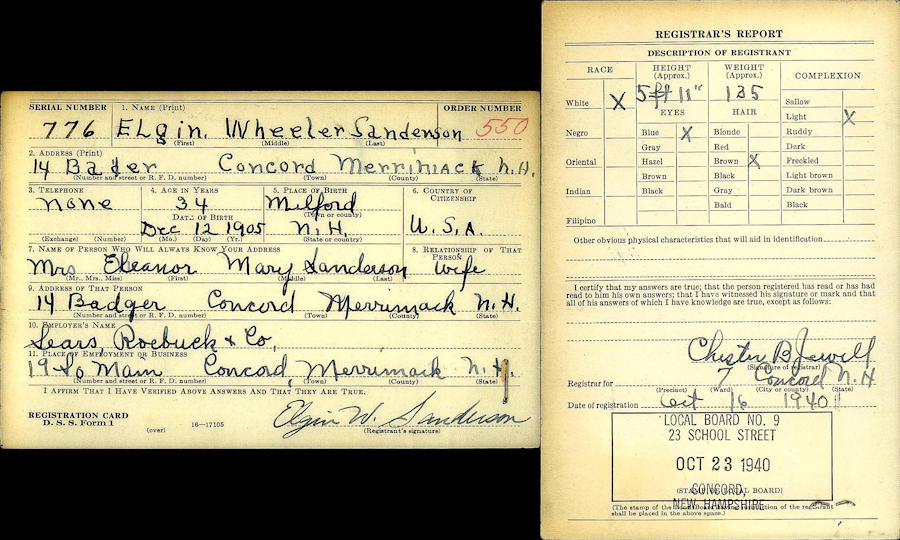 SERIAL NUMBER 1. NAME (Print) ORDER NUMBER
776 ELgin Wheeler Sanderson 550
(First) (Middle) (Last)
2. ADDRESS (Print)
14 Bader Concord Merrimack N.H.
(Number and street or R. F. D. number) (Town) (County) (State)
3. TELEPHONE 4. AGE IN YEARS 5. PLACE OF BIRTH 6. COUNTRY OF CITIZENSHIP
none 34 Milford
DATE OF BIRTH (Town or county)
Dec 12 1905 N.H. U.S.A.
(Exchange) (Number) (Mo.) (Day) (Yr.) (State or country)
7. NAME OF PERSON WHO WILL ALWAYS KNOW YOUR ADDRESS 8. RELATIONSHIP OF THAT PERSON
Mrs Eleanor Mary Sanderson wife
(Mr., Mrs., Miss) (First) (Middle) (Last)
9. ADDRESS OF THAT PERSON
14 Badger Concord Merrimack N.H.
(Number and street or R. F. D. number) (Town) (County) (State)
10. EMPLOYER'S NAME
Sears, Roebuck & Co,
11. PLACE OF EMPLOYMENT OR BUSINESS
19 So Main Concord, Merrimack N.H.
(Number and street or R. F. D. number) (Town) (County) (State)
I AFFIRM THAT I HAVE VERIFIED ABOVE ANSWERS AND THAT THEY ARE TRUE.
REGISTRATION CARD
D. S. S. Form 1 (over) 16—17105
Elgin W. Sanderson
(Registrant's signature)
REGISTRAR'S REPORT
DESCRIPTION OF REGISTRANT
RACE HEIGHT (Approx.) WEIGHT (Approx.) COMPLEXION
White X 5 ft 11" 135 Sallow
EYES HAIR Light X
Negro Blue X Blonde Ruddy
Gray Red Dark
Oriental Hazel Brown X Freckled
Brown Black Light brown
Indian Black Gray Dark brown
Bald Black
Filipino
Other obvious physical characteristics that will aid in identification
I certify that my answers are true; that the person registered has read or has had
read to him his own answers; that I have witnessed his signature or mark and that
all of his answers of which I have knowledge are true, except as follows:
Chester B Jewell
(Signature of registrar)
Registrar for 7 Concord N H
(Precinct) (Ward) (City or county) (State)
Date of registration Oct 16 1940
LOCAL BOARD NO. 9
23 SCHOOL STREET
OCT 23 1940
CONCORD,
(STAMP OF LOCAL BOARD)
NEW HAMPSHIRE
(The stamp of the Local Board having jurisdiction of the registrant
shall be placed in the above space.)